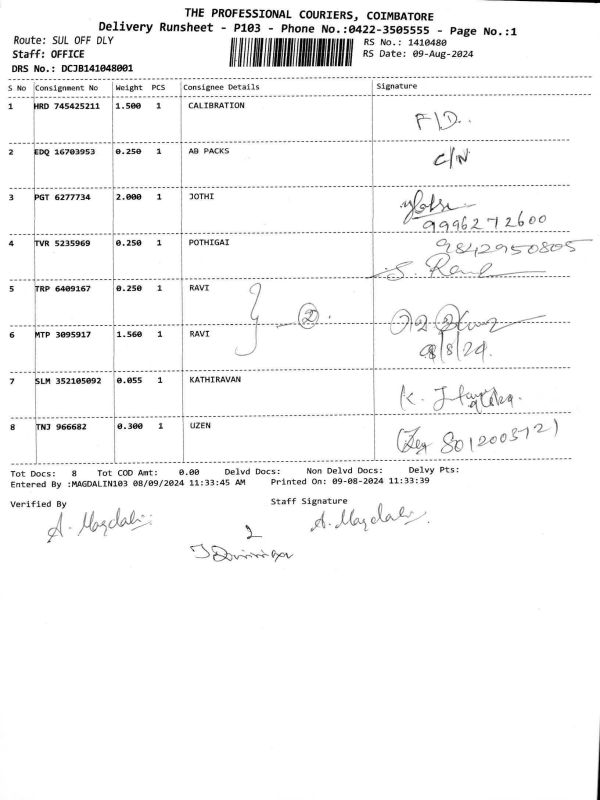 THE PROFESSIONAL COURIERS, COIMBATORE
Delivery Runsheet - P103 - Phone No.:0422-3505555 - Page No.:1
Route: SUL OFF DLY
RS No.: 1410480
Staff: OFFICE
RS Date: 09-Aug-2024
DRS No.: DCJB141048001
S No Consignment No Weight PCS Consignee Details Signature
1 HRD 745425211 1.500 1 CALIBRATION F/D..
2 EDQ 16703953 0.250 1 AB PACKS C/N
3 PGT 6277734 2.000 1 JOTHI
9996272600
4 TVR 5235969 0.250 1 POTHIGAI 9842950805
S.
5 TRP 6409167 0.250 1 RAVI
2.
6 MTP 3095917 1.560 1 RAVI
9/8/24.
7 SLM 352105092 0.055 1 KATHIRAVAN
K.
8 TNJ 966682 0.300 1 UZEN
Tot Docs: 8 Tot COD Amt: 0.00 Delvd Docs: Non Delvd Docs: Delvy Pts:
Entered By :MAGDALIN103 08/09/2024 11:33:45 AM Printed On: 09-08-2024 11:33:39
Verified By Staff Signature
A. Magdalin A. Magdalin
2